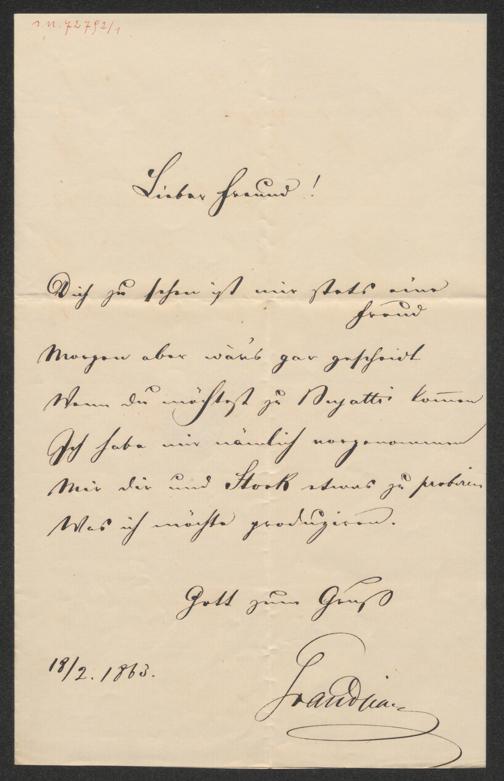 I.N. 72792/1
Lieber Freund!
Dich zu sehen ist mir stets eine
Freud
Morgen aber wär's gar gescheidt
Wenn du möchtest zu kom̄en
Ich habe mir nämlich vorgenommen
Mir dir und Stork etwas zu probiren
Was ich möchte produziren.
Gott zum Gruß
18/2. 1863.